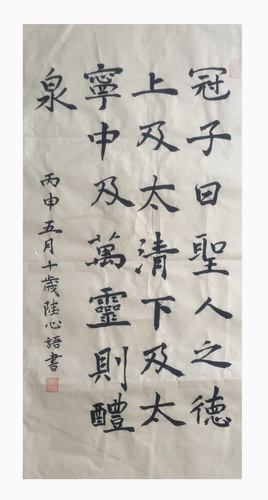 冠子曰聖人之德
上及太清下及太
寧中及萬靈則醴
泉
丙申五月十歲陸心語書